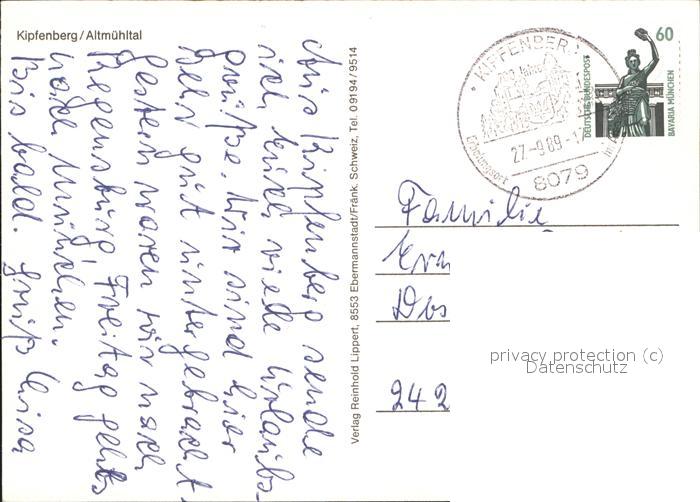 Kipfenberg/Altmühltal
Aus Kipfenberg sende
ich euch viele Urlaubs-
grüße. Wir sind hier
sehr gut untergebracht.
Gestern waren wir nach
Regensburg, Freitag gehts
nach München.
Bis bald. Gruß Luisa
Verlag Reinhold Lippert, 8553 Ebermannstadt/Fränk. Schweiz, Tel. 09194/9514
KIPFENBER
27.-9.89.-1
8079
Erholungsort
60
DEUTSCHE BUNDESPOST
BAVARIA MÜNCHEN
Familie
242
privacy protection (c)
Datenschutz